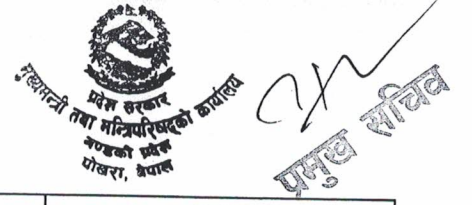 प्रदेश सरकार
मुख्यमन्त्री तथा मन्त्रिपरिषद्को कार्यालय
गण्डकी प्रदेश
पोखरा, नेपाल
प्रमुख सचिव